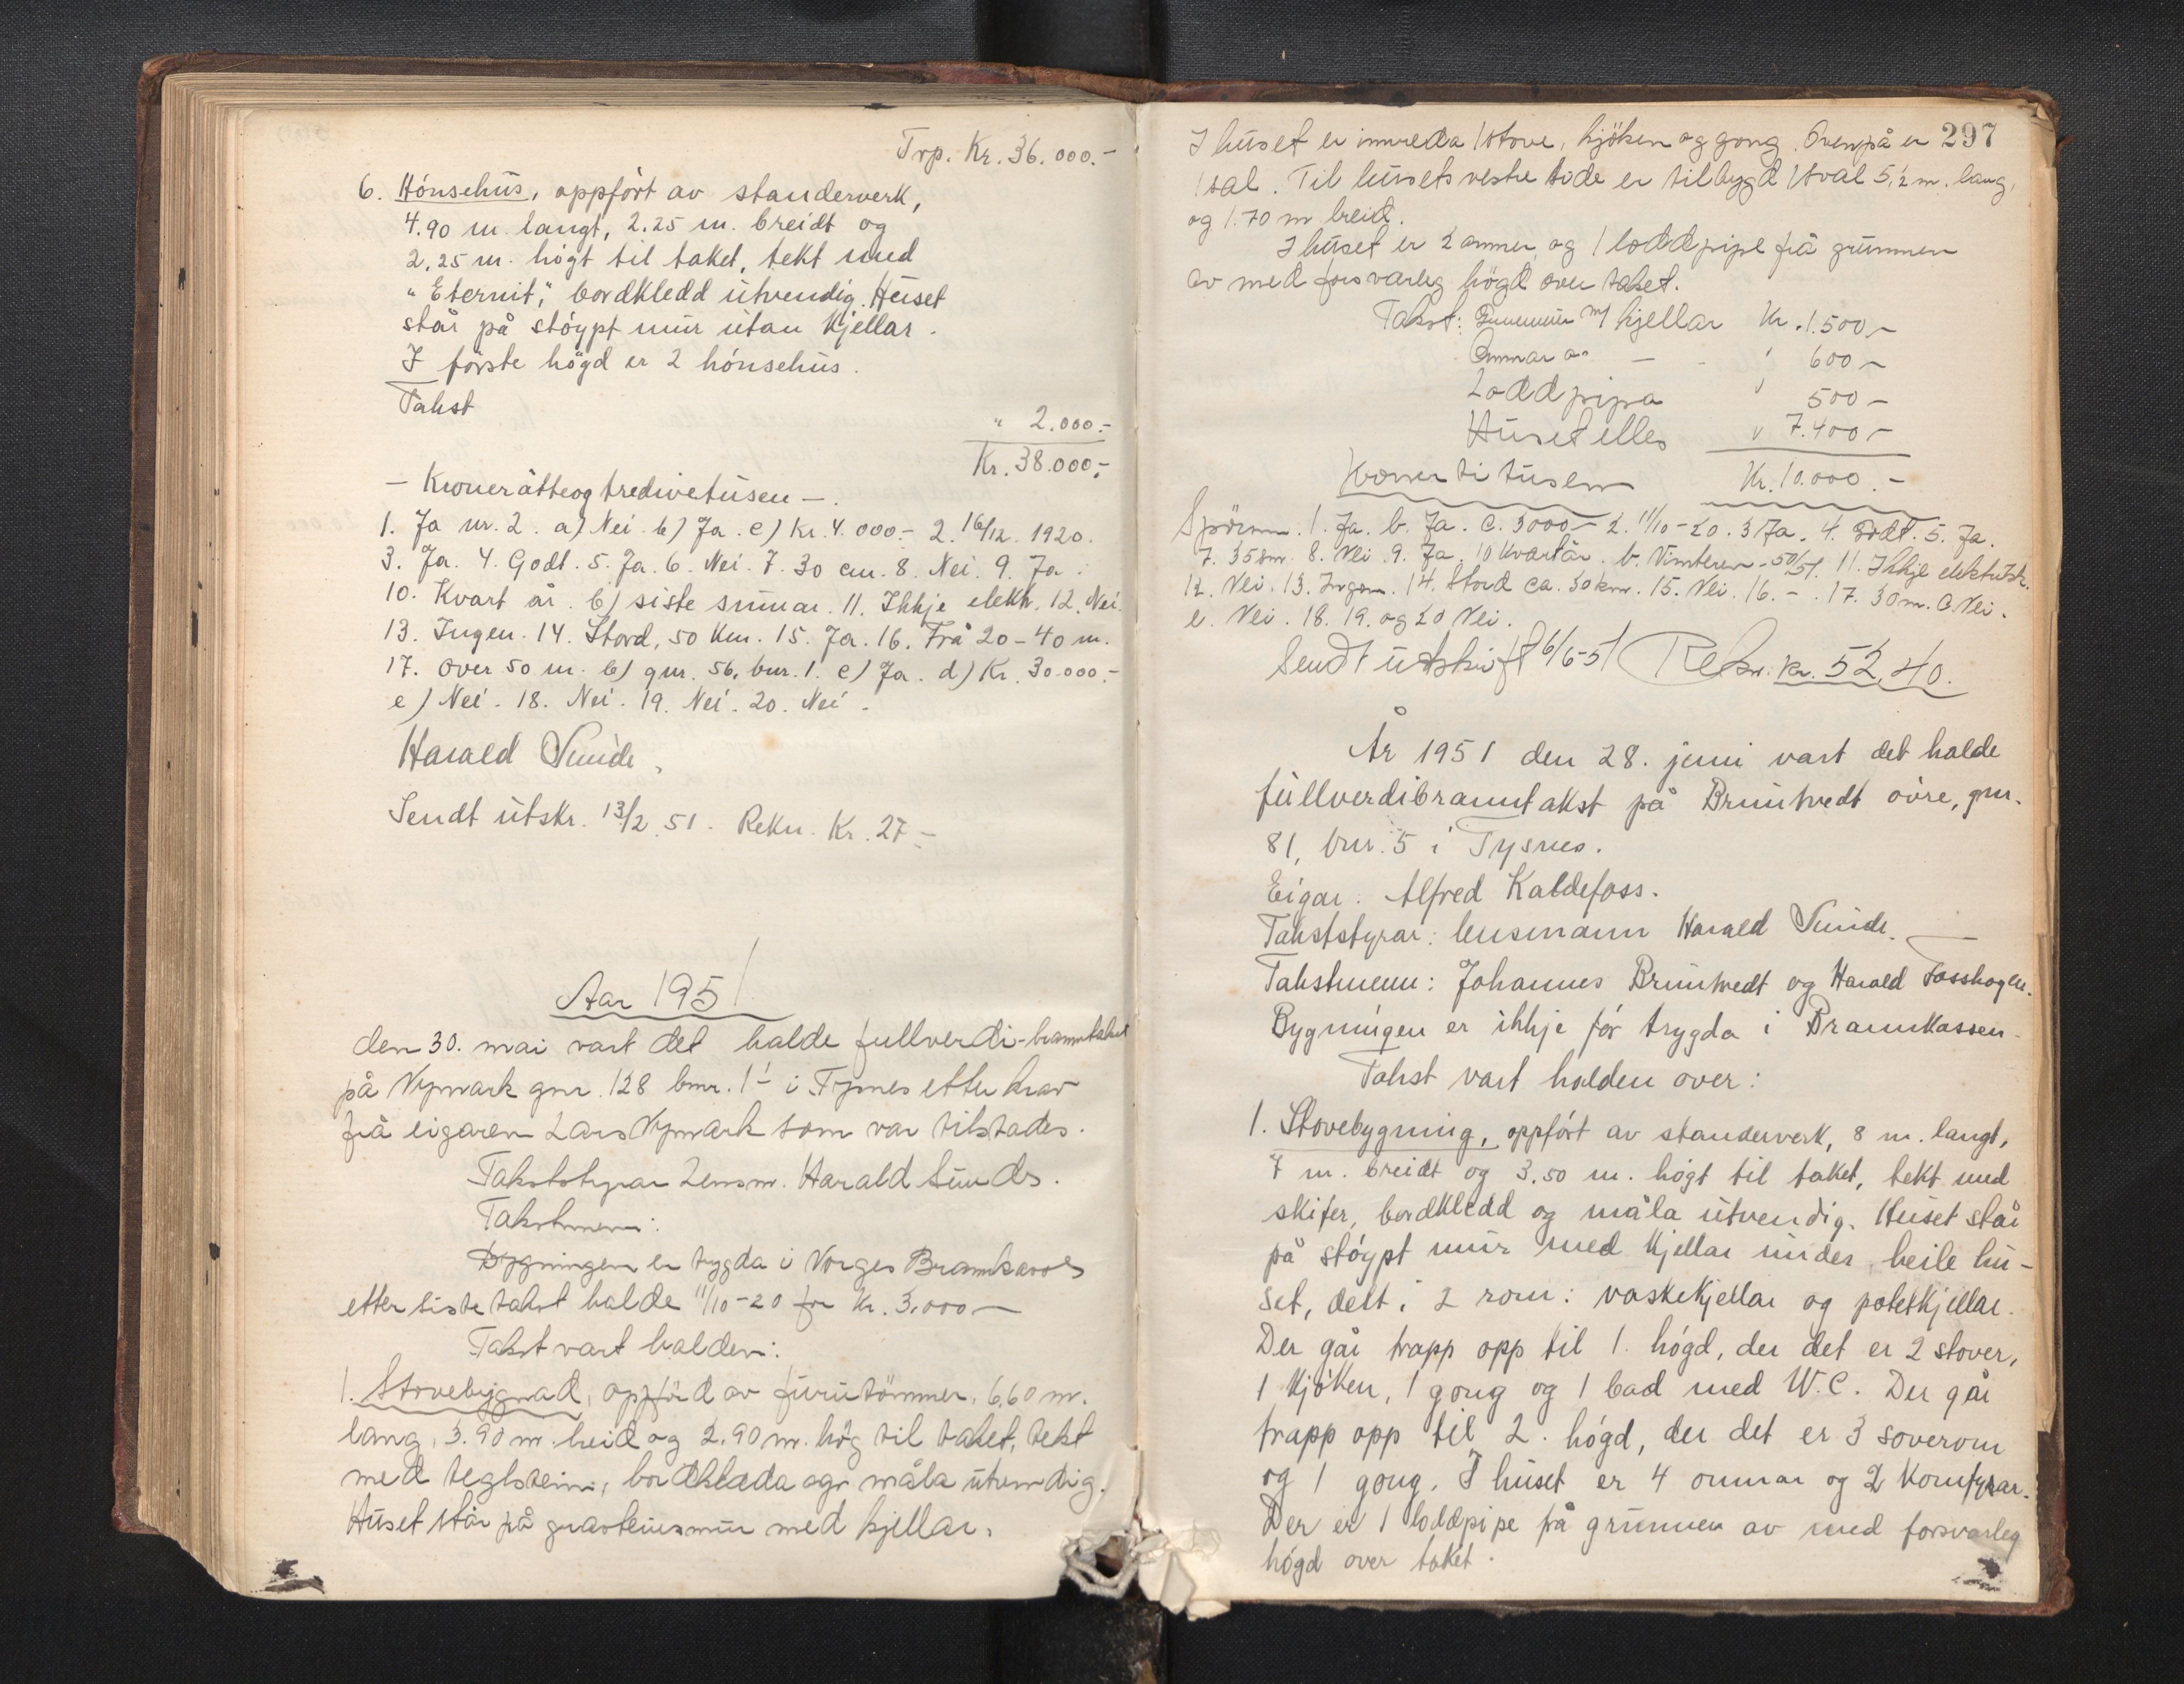 Trp. Kr. 36.000.-
6. Hónsehús, oppfört av standerverk,
4.90 m. langt, 2.25 m. breidt og
2.25 m. högt til taket, tekt med
"Eternit", bordkledd útvendig. Húset
står på stöypt múr útan Kjellar.
I förste högd er 2 hónsehús.
Takst
" 2.000.-
Kr. 38.000.-
- Kroneråtteogtredivetúsen -.
1. Ja nr. 2. a) Nei. b) Ja. c) Kr. 4.000.- 2. 16/12. 1920.
3. Ja. 4. Godt. 5. Ja. 6. Nei. 7. 30 cm. 8. Nei. 9. Ja.
10. Kvart år. b) siste súmar. 11. Ikkje elektr. 12. Nei.
13. Ingen. 14. Stord, 50 km. 15. Ja. 16. Frå 20-40 m.
17. Over 50 m. b) gnr. 56, bnr. 1. c) Ja. d) Kr. 30.000.-
e) Nei. 18. Nei. 19. Nei. 20. Nei.
Harald Sunde.
Sendt útskr. 13/2.51. Rekn. Kr. 27.-
Aar 1951
den 30. mai vart det halde fullverdi-branntakst
på Nymark gnr. 128 bnr. 1 i Tysnes etter krav
frå eigaren Lars Nymark som var tilstades.
Takststyrar Lensm. Harald Sunde.
Takstmenn:
Bygningen er trygda i Norges Brannkasse
etter siste takst halde 11/10-20 for kr. 3.000-
Takst vart halden:
1. Stovebygnad, oppförd av furutömmer, 6,60 m.
lang, 3.90 m. breid og 2.90 m. hög til taket, tekt
med teglstein, bordkledda og måla útvendig.
Húset står på gråsteinsmúr med kjellar.
297
I húset er innreda 1 stove, kjöken og gong. Ovenpå er
1 sal. Til húsets vestre side er tilbygd 1 sval 5,2 m. lang,
og 1.70 m breid.
I húset er 2 omner og 1 loddpipe frå grunnen
av med forsvarleg högd over taket.
Takst: Grunnmúr m/ kjellar Kr. 1.500-
Omnar - - " 600-
Loddpipa " 500-
Húset elles " 7.400-
Kroner ti túsen Kr. 10.000.-
Spörsm. 1. Ja. b. Ja. c. 3000- 2. 11/10-20. 3 Ja. 4. Godt. 5. Ja.
7. 35 cm. 8. Nei. 9. Ja. 10 Kvartår. b. Vinteren - 50/51. 11. Ikkje elektrisk.
12. Nei. 13. Ingen. 14. Stord ca. 30 km. 15. Nei. 16. -. 17. 30 m. c. Nei.
e. Nei. 18. 19. og 20 Nei.
Sendt útskrift 6/6-51 Rekn. kr. 52,40.
År 1951 den 28. juni vart det halde
fúllverdibranntakst på Bruntvedt övre, gnr.
81, bnr. 5 i Tysnes.
Eigar: Alfred Kaldefoss.
Takststyrar: lensmann Harald Sunde.
Takstmenn: Johannes Bruntvedt og Harald Fosshagen.
Bygningen er ikkje för trygda i Brannkassen.
Takst vart halden over:
1. Stovebygning, oppfört av standerverk, 8 m. langt,
7 m. breidt og 3.50 m. högt til taket, tekt med
skifer, bordkledd og måla útvendig. Húset står
på stöypt múr med kjellar únder heile hú-
set, delt i 2 rom: vaskekjellar og potetkjellar.
Der går trapp opp til 1. högd, der det er 2 stover,
1 kjöken, 1 gong og 1 bad med W.C. Der går
trapp opp til 2. högd, der det er 3 soverom
og 1 gong. I húset er 4 omnar og 2 komfyrar.
Der er 1 loddpipe frå grúnnen av med forsvarleg
högd over taket.